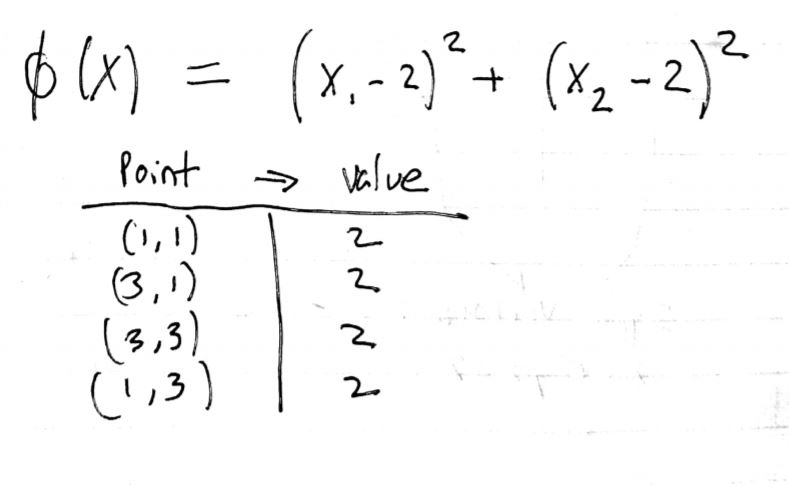 ϕ(X) = (x₁-2)² + (x₂-2)²
Point → value
(1,1) 2
(3,1) 2
(3,3) 2
(1,3) 2